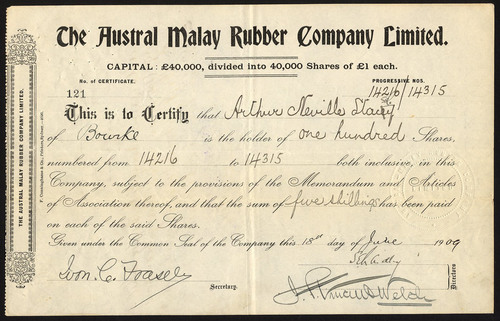 The Austral Malay Rubber Company Limited.
CAPITAL: £40,000, divided into 40,000 Shares of £1 each.
No. of CERTIFICATE. PROGRESSIVE NOS.
121 14216/14315
This is to Certify that Arthur Neville Stacy
of Bourke is the holder of one hundred Shares,
numbered from 14216 to 14315 both inclusive, in this
Company, subject to the provisions of the Memorandum and Articles
of Association thereof, and that the sum of five shillings has been paid
on each of the said Shares.
Given under the Common Seal of the Company this 18th day of June 1909
Secretary.
Directors
THE AUSTRAL MALAY RUBBER COMPANY LIMITED.